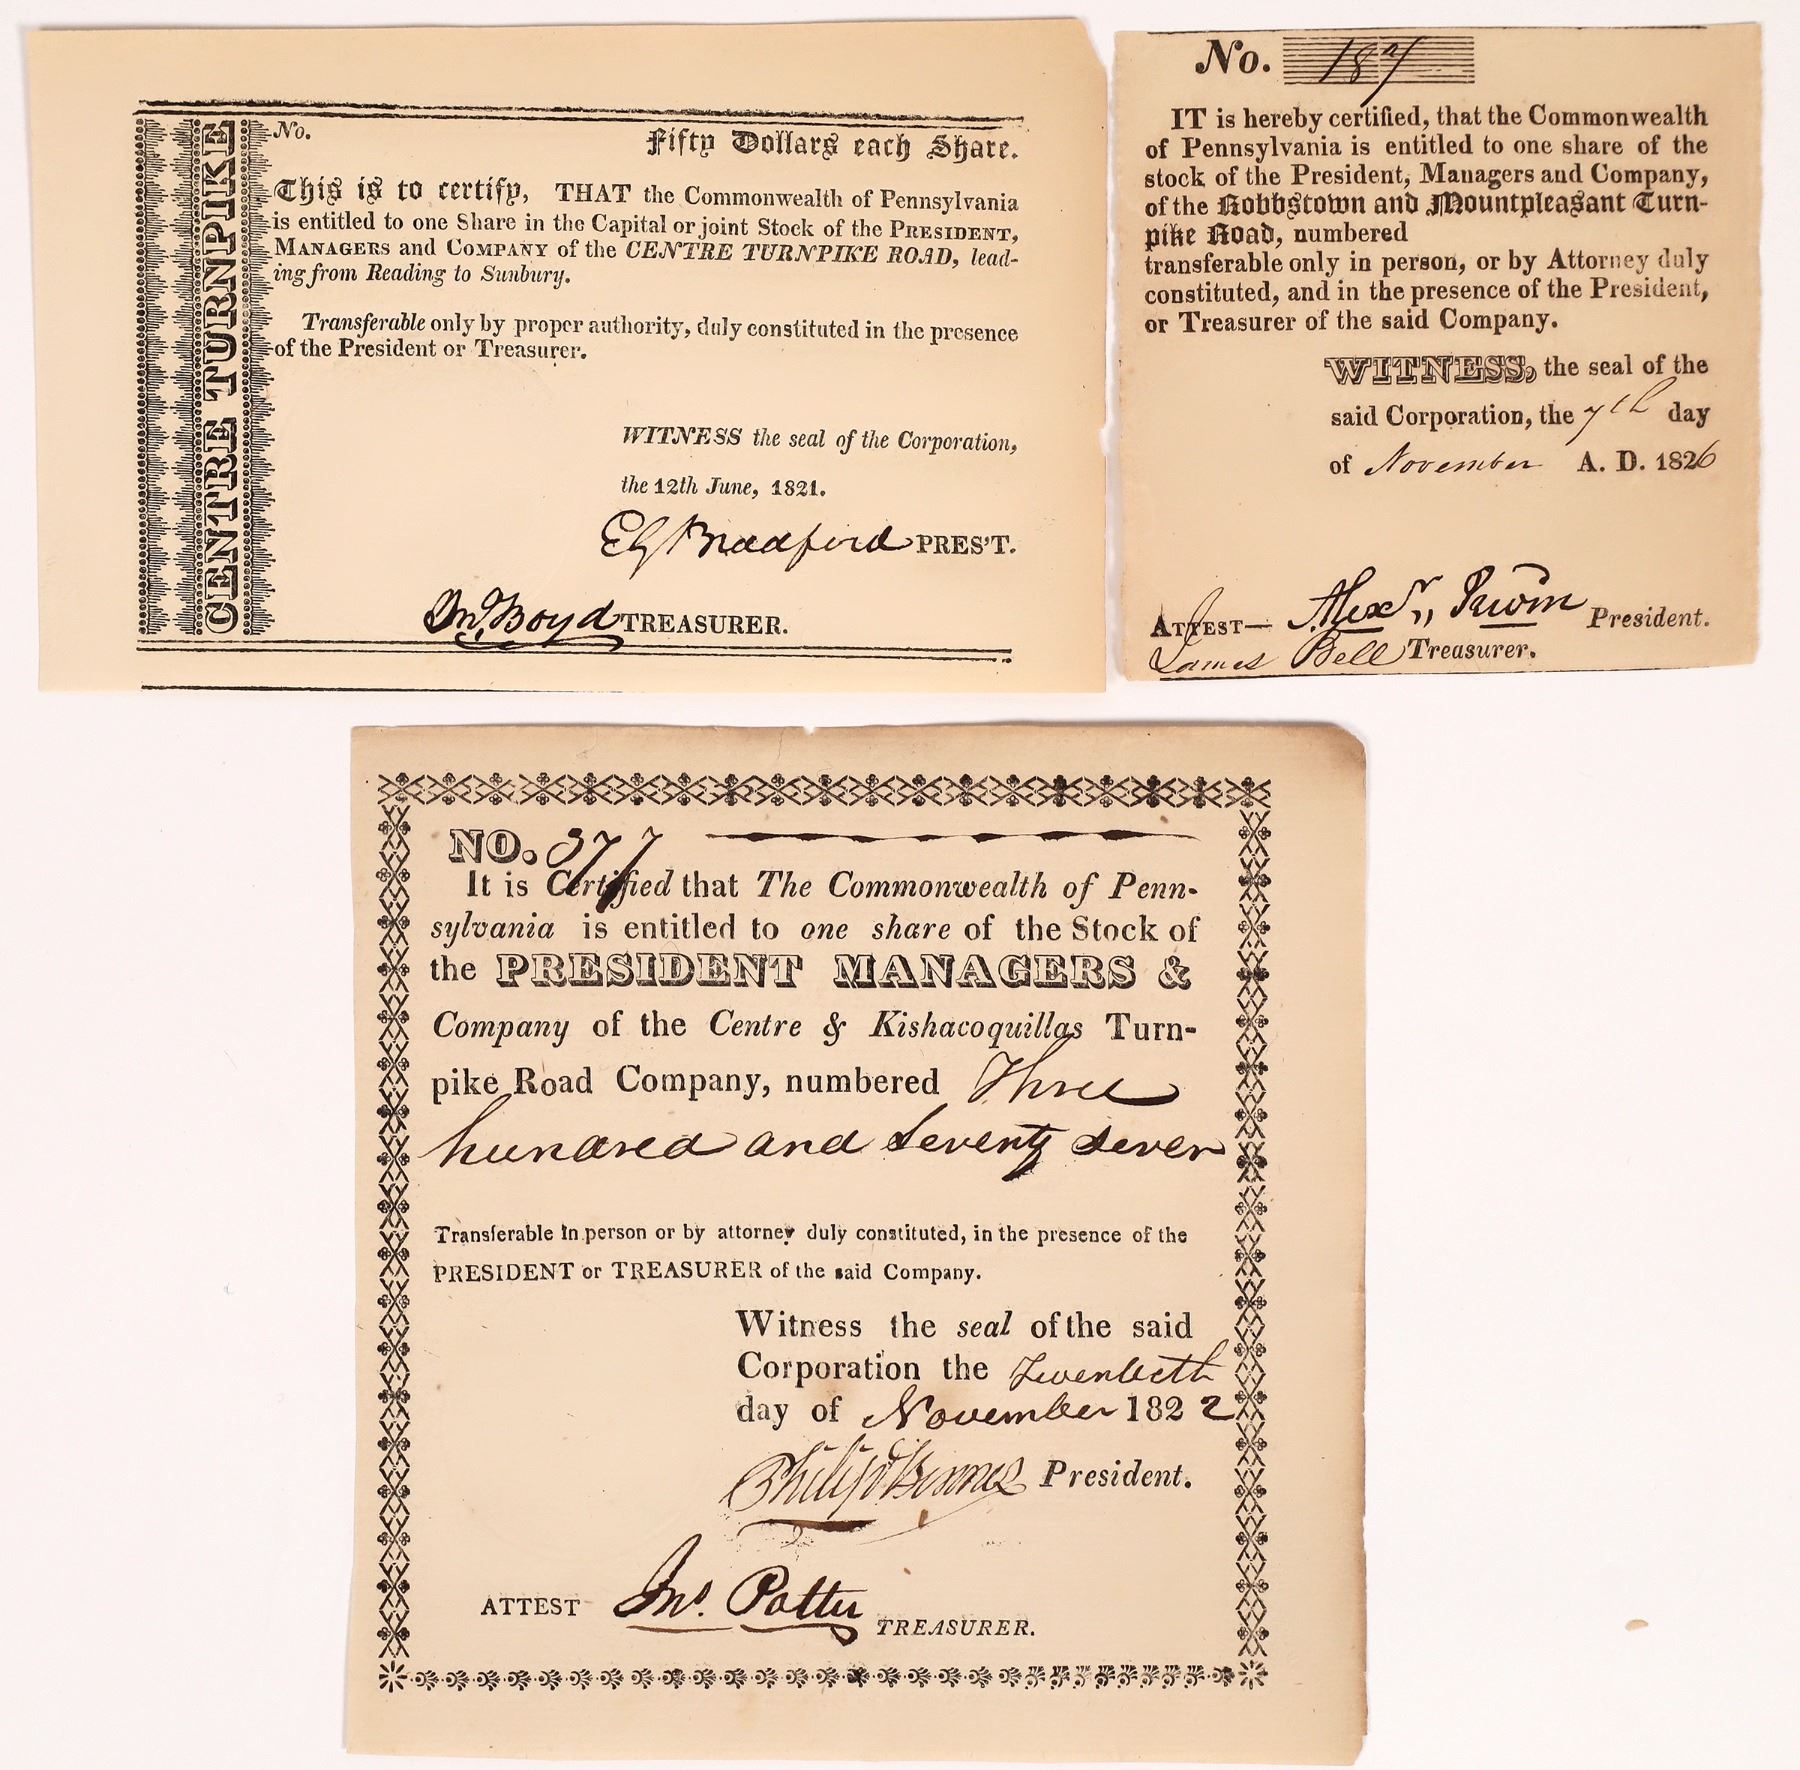 CENTRE TURNPIKE
No.
Fifty Dollars each Share.
This is to certify, THAT the Commonwealth of Pennsylvania
is entitled to one Share in the Capital or joint Stock of the PRESIDENT,
MANAGERS and COMPANY of the CENTRE TURNPIKE ROAD, lead-
ing from Reading to Sunbury.
Transferable only by proper authority, duly constituted in the presence
of the President or Treasurer.
WITNESS the seal of the Corporation,
the 12th June, 1821.
Bradford PRES'T.
Jno. Boyd TREASURER.
No. 187
IT is hereby certified, that the Commonwealth
of Pennsylvania is entitled to one share of the
stock of the President, Managers and Company,
of the Robbstown and Mountpleasant Turn-
pike Road, numbered
transferable only in person, or by Attorney duly
constituted, and in the presence of the President,
or Treasurer of the said Company.
WITNESS, the seal of the
said Corporation, the 7th day
of November A. D. 1826
ATTEST— Alexr. Irwin President.
James Bell Treasurer.
NO. 377
It is Certified that The Commonwealth of Penn-
sylvania is entitled to one share of the Stock of
the PRESIDENT MANAGERS &
Company of the Centre & Kishacoquillas Turn-
pike Road Company, numbered Three
hundred and seventy seven
Transferable In person or by attorney duly constituted, in the presence of the
PRESIDENT or TREASURER of the said Company.
Witness the seal of the said
Corporation the Twentieth
day of November 1822
Philip Benner President.
ATTEST Jno. Potter TREASURER.